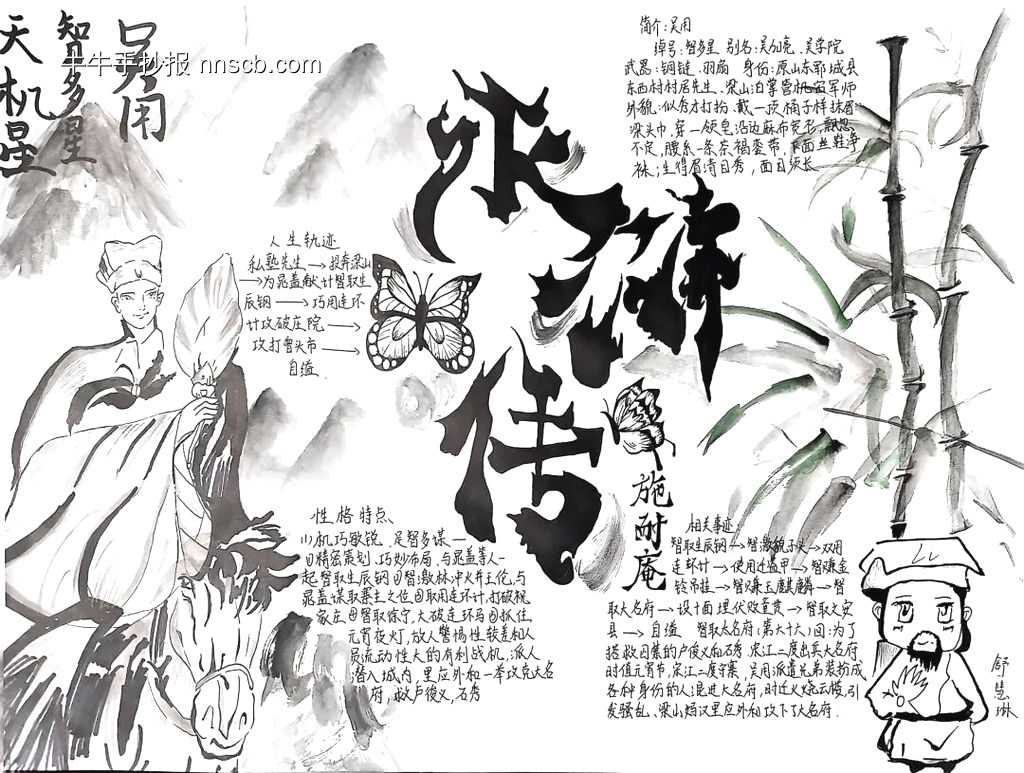 天机星
智多星
吴用
牛牛手抄报 nnscb.com
水浒传
施耐庵
简介:吴用
绰号:智多星 别名:吴加亮、吴学究
武器:铜链、羽扇 身份:原山东郓城县
东西村村居先生、梁山泊掌管机密军师
外貌:似秀才打扮、戴一顶桶子样抹眉
梁头巾,穿一领皂沿边麻布宽衫,飘忽
不定,腰系一条茶褐銮带,下面丝鞋净
袜;生得眉清目秀,面白须长
人生轨迹
私塾先生→投奔梁山
→为晁盖献计智取生
辰钢→巧用连环
计攻破庄院→
攻打曾头市→
自缢
性格特点
(1)机巧敏锐、足智多谋一
①精密策划、巧妙布局、与晁盖等人一
起智取生辰钢②智激林冲火并王伦,与
晁盖谋取寨主之位③取用连环计,打破祝
家庄④智取徐宁,大破连环马⑤抓住
元宵夜灯,放人警惕性较差和人
员流动性大的有利战机,派人
潜入城内,里应外和一举攻克大名
府,救卢俊义,石秀
相关事迹:
智取生辰钢→智激豹子头→双用
连环计→使用迷盔甲→智赚金
铃吊挂→智赚玉麒麟→智
取大名府→设十面埋伏败童贯→智取文安
县→自缢 智取大名府(第六十六)回:为了
搭救囚禁的卢俊义和石秀,宋江二度出兵大名府
时值元宵节,宋江二度守寨,吴用派遣兄弟装扮成
各种身份的人混进大名府,时迁火烧云楼,引
发骚乱、梁山好汉里应外和攻下了大名府.
舒慧琳